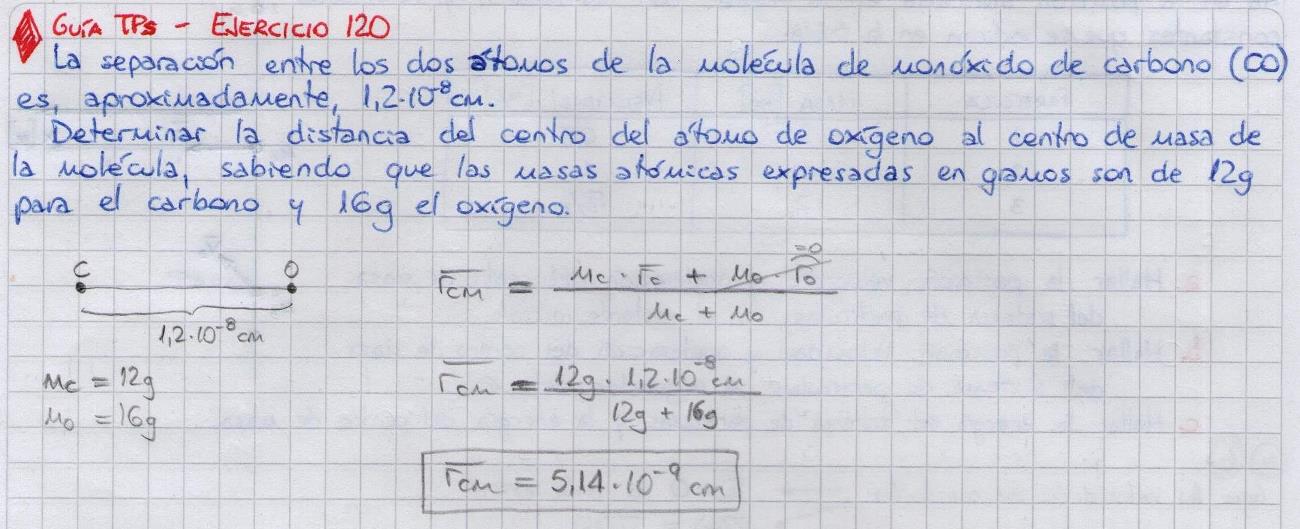 GUÍA TPs - EJERCICIO 120
La separación entre los dos átomos de la molécula de monóxido de carbono (CO)
es, aproximadamente, 1,2·10⁻⁸cm.
Determinar la distancia del centro del átomo de oxígeno al centro de masa de
la molécula, sabiendo que las masas atómicas expresadas en gramos son de 12g
para el carbono y 16g el oxígeno.
C O
1,2·10⁻⁸cm
mc = 12g
mo = 16g
=0
rcm = mc · rc + mo · ro / mc + mo
rcm = 12g · 1,2·10⁻⁸cm / 12g + 16g
rcm = 5,14·10⁻⁹ cm